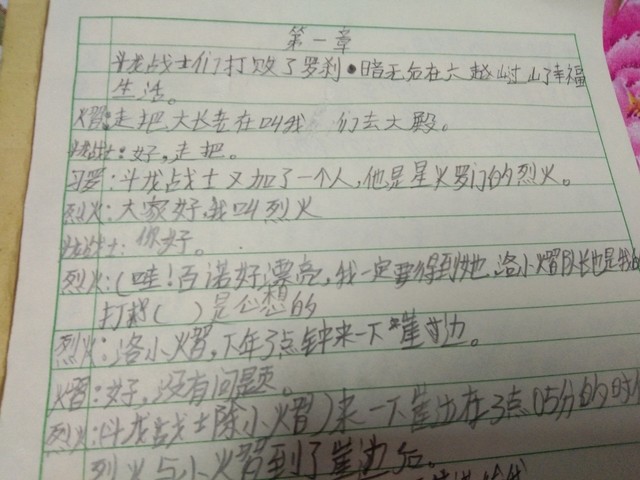 第一章
斗龙战士们打败了罗刹·暗无后在大越过了幸福
生活。
熠:走把,大长老在叫我们去大殿。
龙战士:好,走把。
习罗:斗龙战士又加了一个人,他是星火罗门的烈火。
烈火:大家好,我叫烈火
龙战士:你好。
烈火:(哇!百诺好漂亮,我一定要得到她,洛小熠队长也是我的
打( )是心想的
烈火:洛小熠,下午3点钟来一下崖边。
熠:好,没有问题。
烈火:(斗龙战士除小熠)来一下崖边在3点05分的时
烈火与小熠到了崖边后。